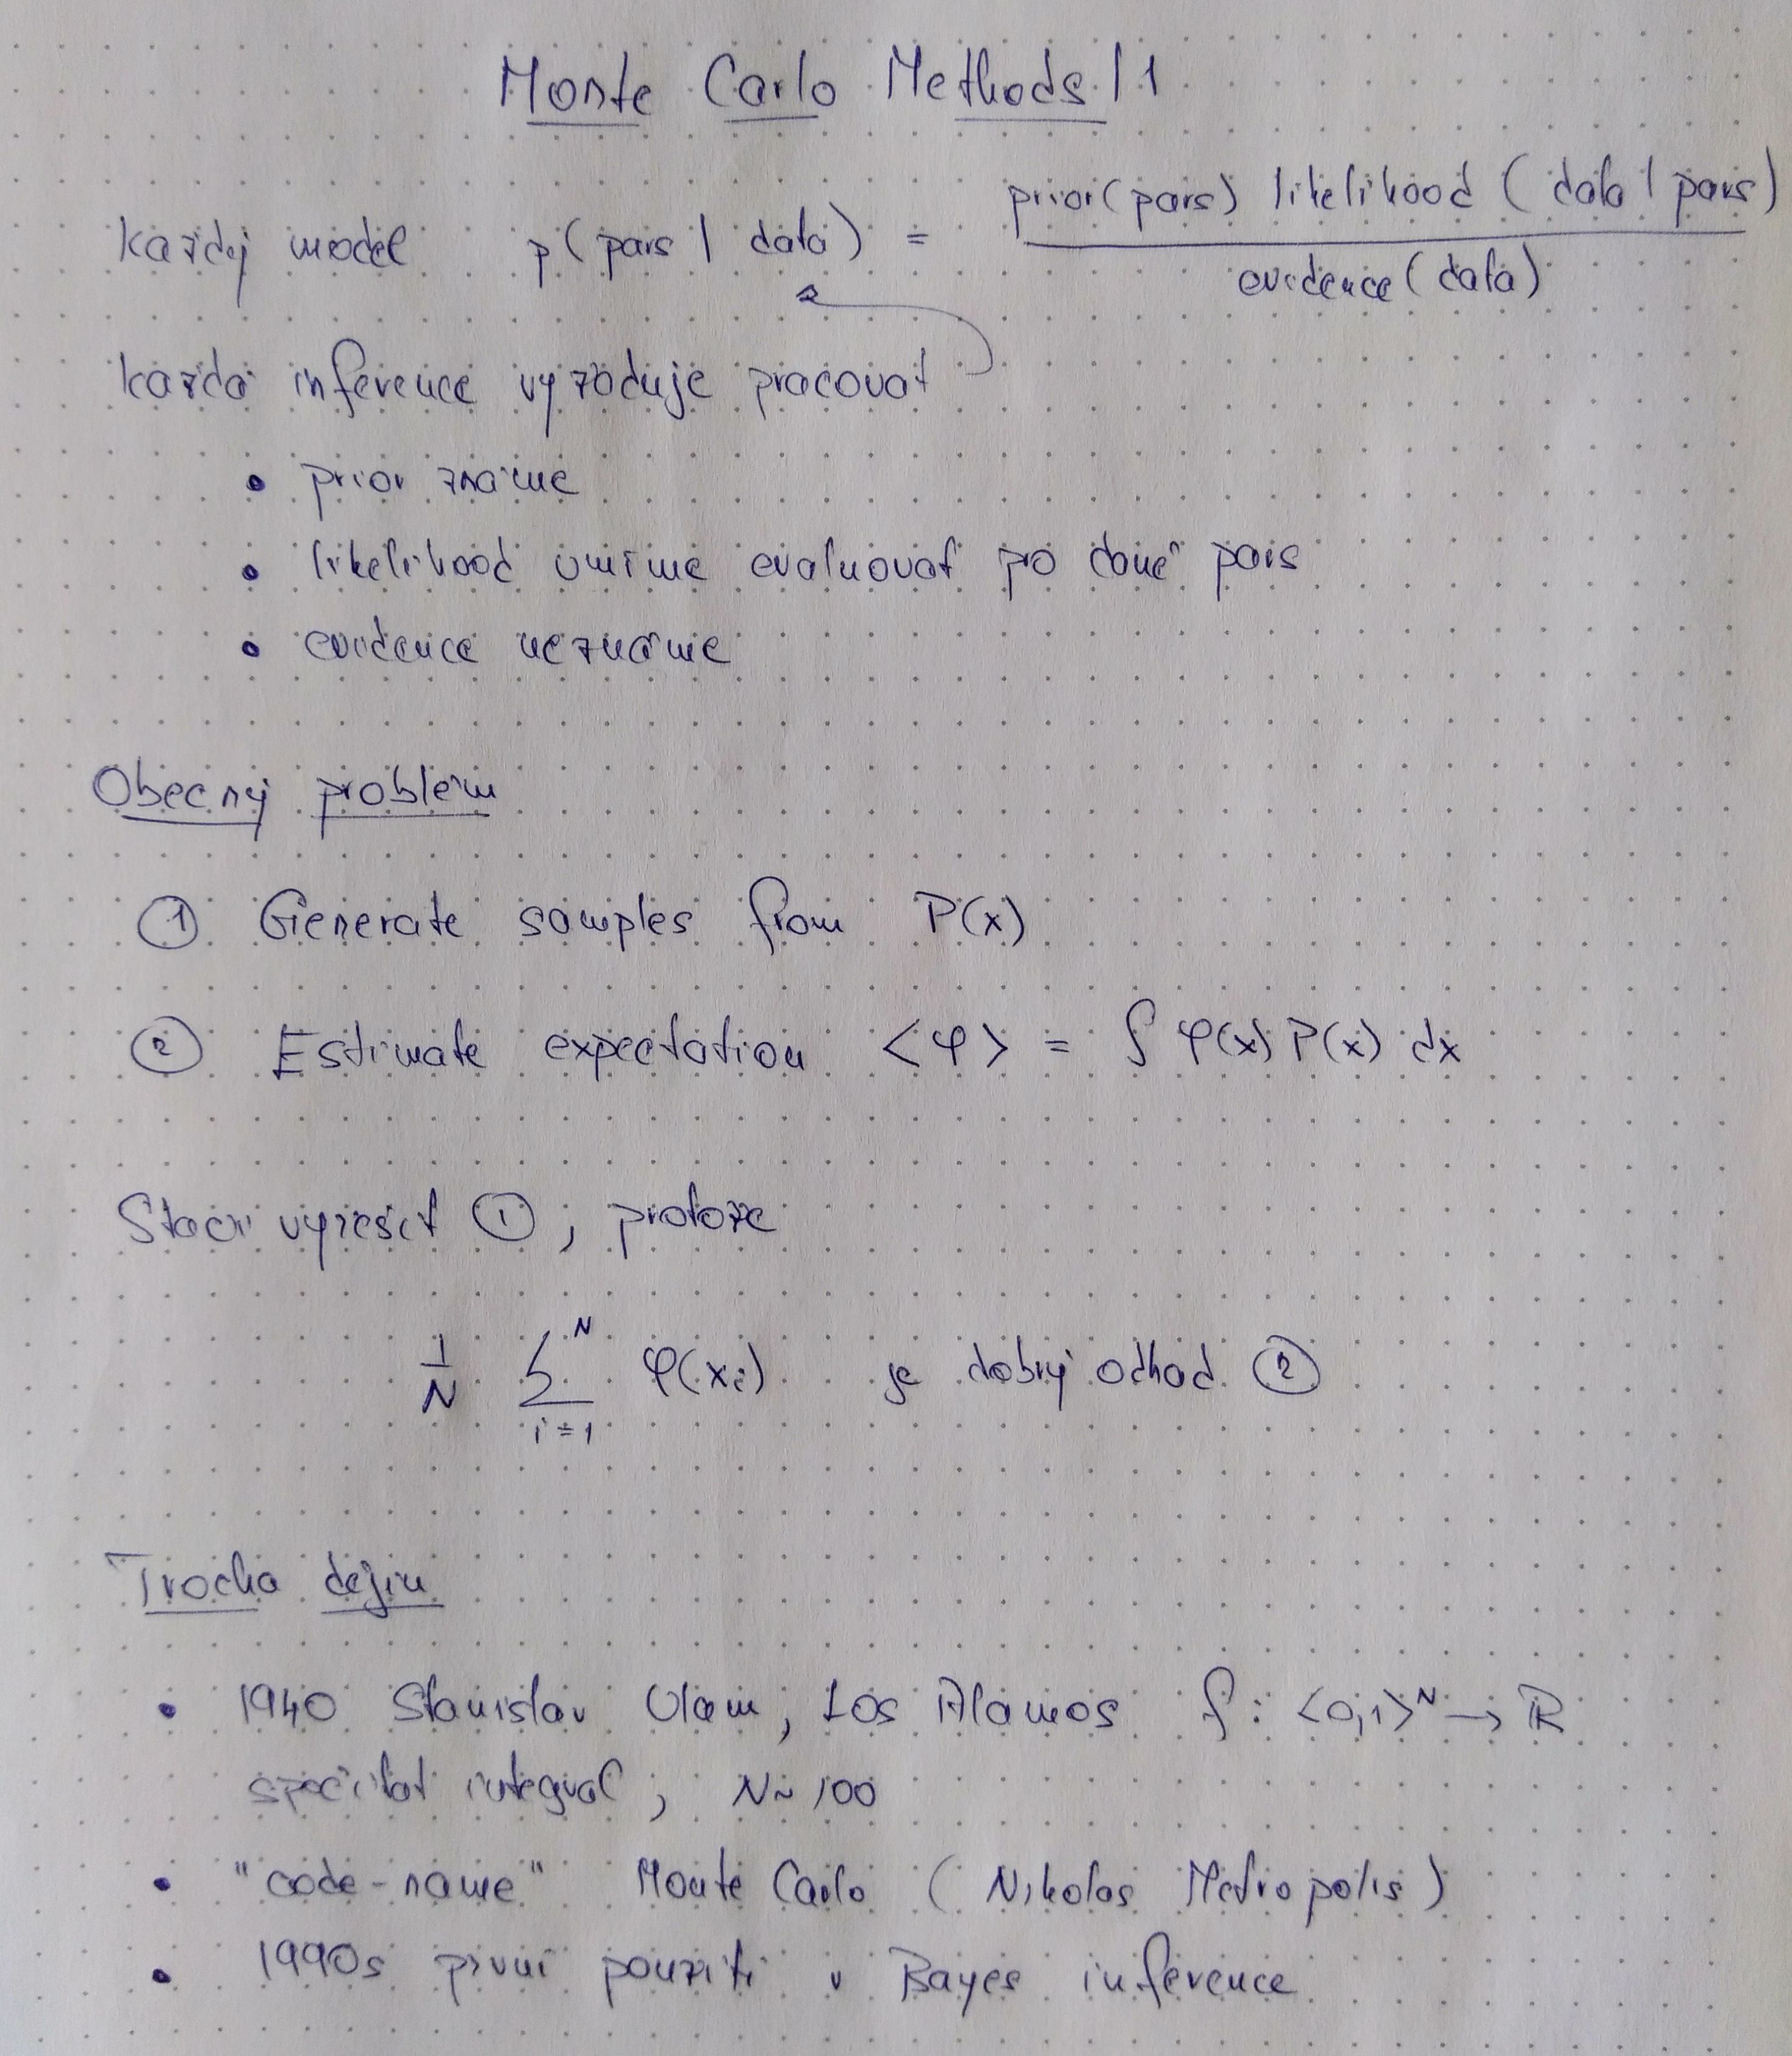 Monte Carlo Methods / 1
Každý model p(pars | data) = prior(pars) likelihood (data | pars)
evidence (data)
každá inference vyžaduje pracovat
• prior známe
• likelihood umíme evaluovat pro dané pars
• evidence neznáme
Obecný problém
① Generate samples from P(x)
② Estimate expectation <φ> = ∫ φ(x) P(x) dx
Stačí vyřešit ①, protože
1/N ∑_{i=1}^{N} φ(x_i) je dobrý odhad ②
Trocha dějin
• 1940 Stanislav Ulam, Los Alamos f: <0,1>^N → ℝ
spočítat integral, N~100
• "code-name" Monte Carlo (Nikolas Metropolis)
• 1990s první použití v Bayes inference